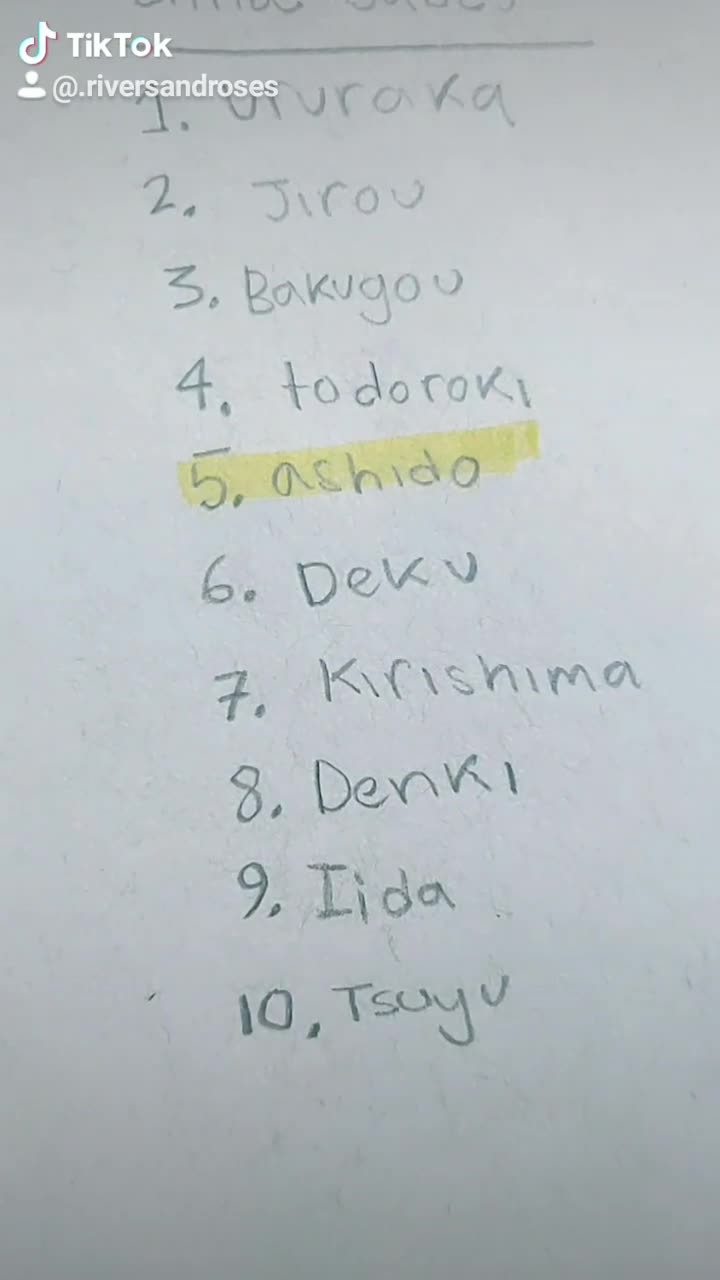 TikTok
@.riversandroses
1. ururaka
2. Jirou
3. Bakugou
4. todoroki
5. ashido
6. Deku
7. Kirishima
8. Denki
9. Iida
10. Tsuyu